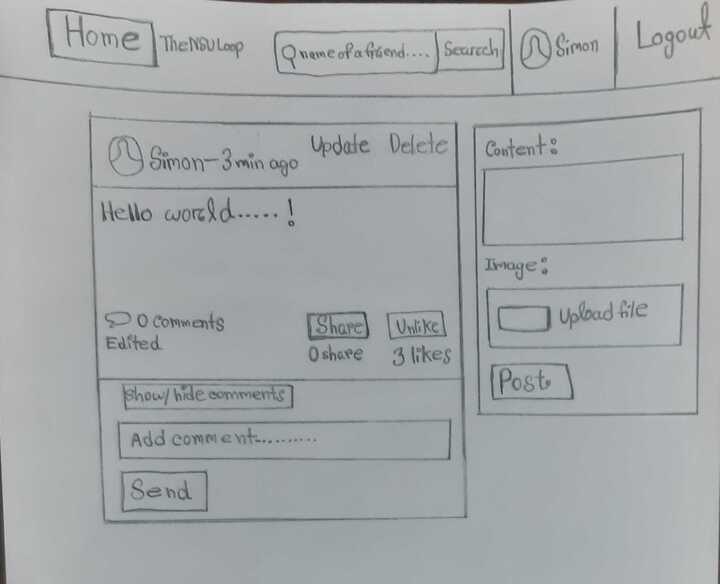 Home TheNSULoop name of a friend.... Search Simon Logout
Simon - 3 min ago Update Delete
Hello world.....!
0 comments Share Unlike
Edited 0 share 3 likes
Show/hide comments
Add comment..........
Send
Content:
Image:
Upload file
Post